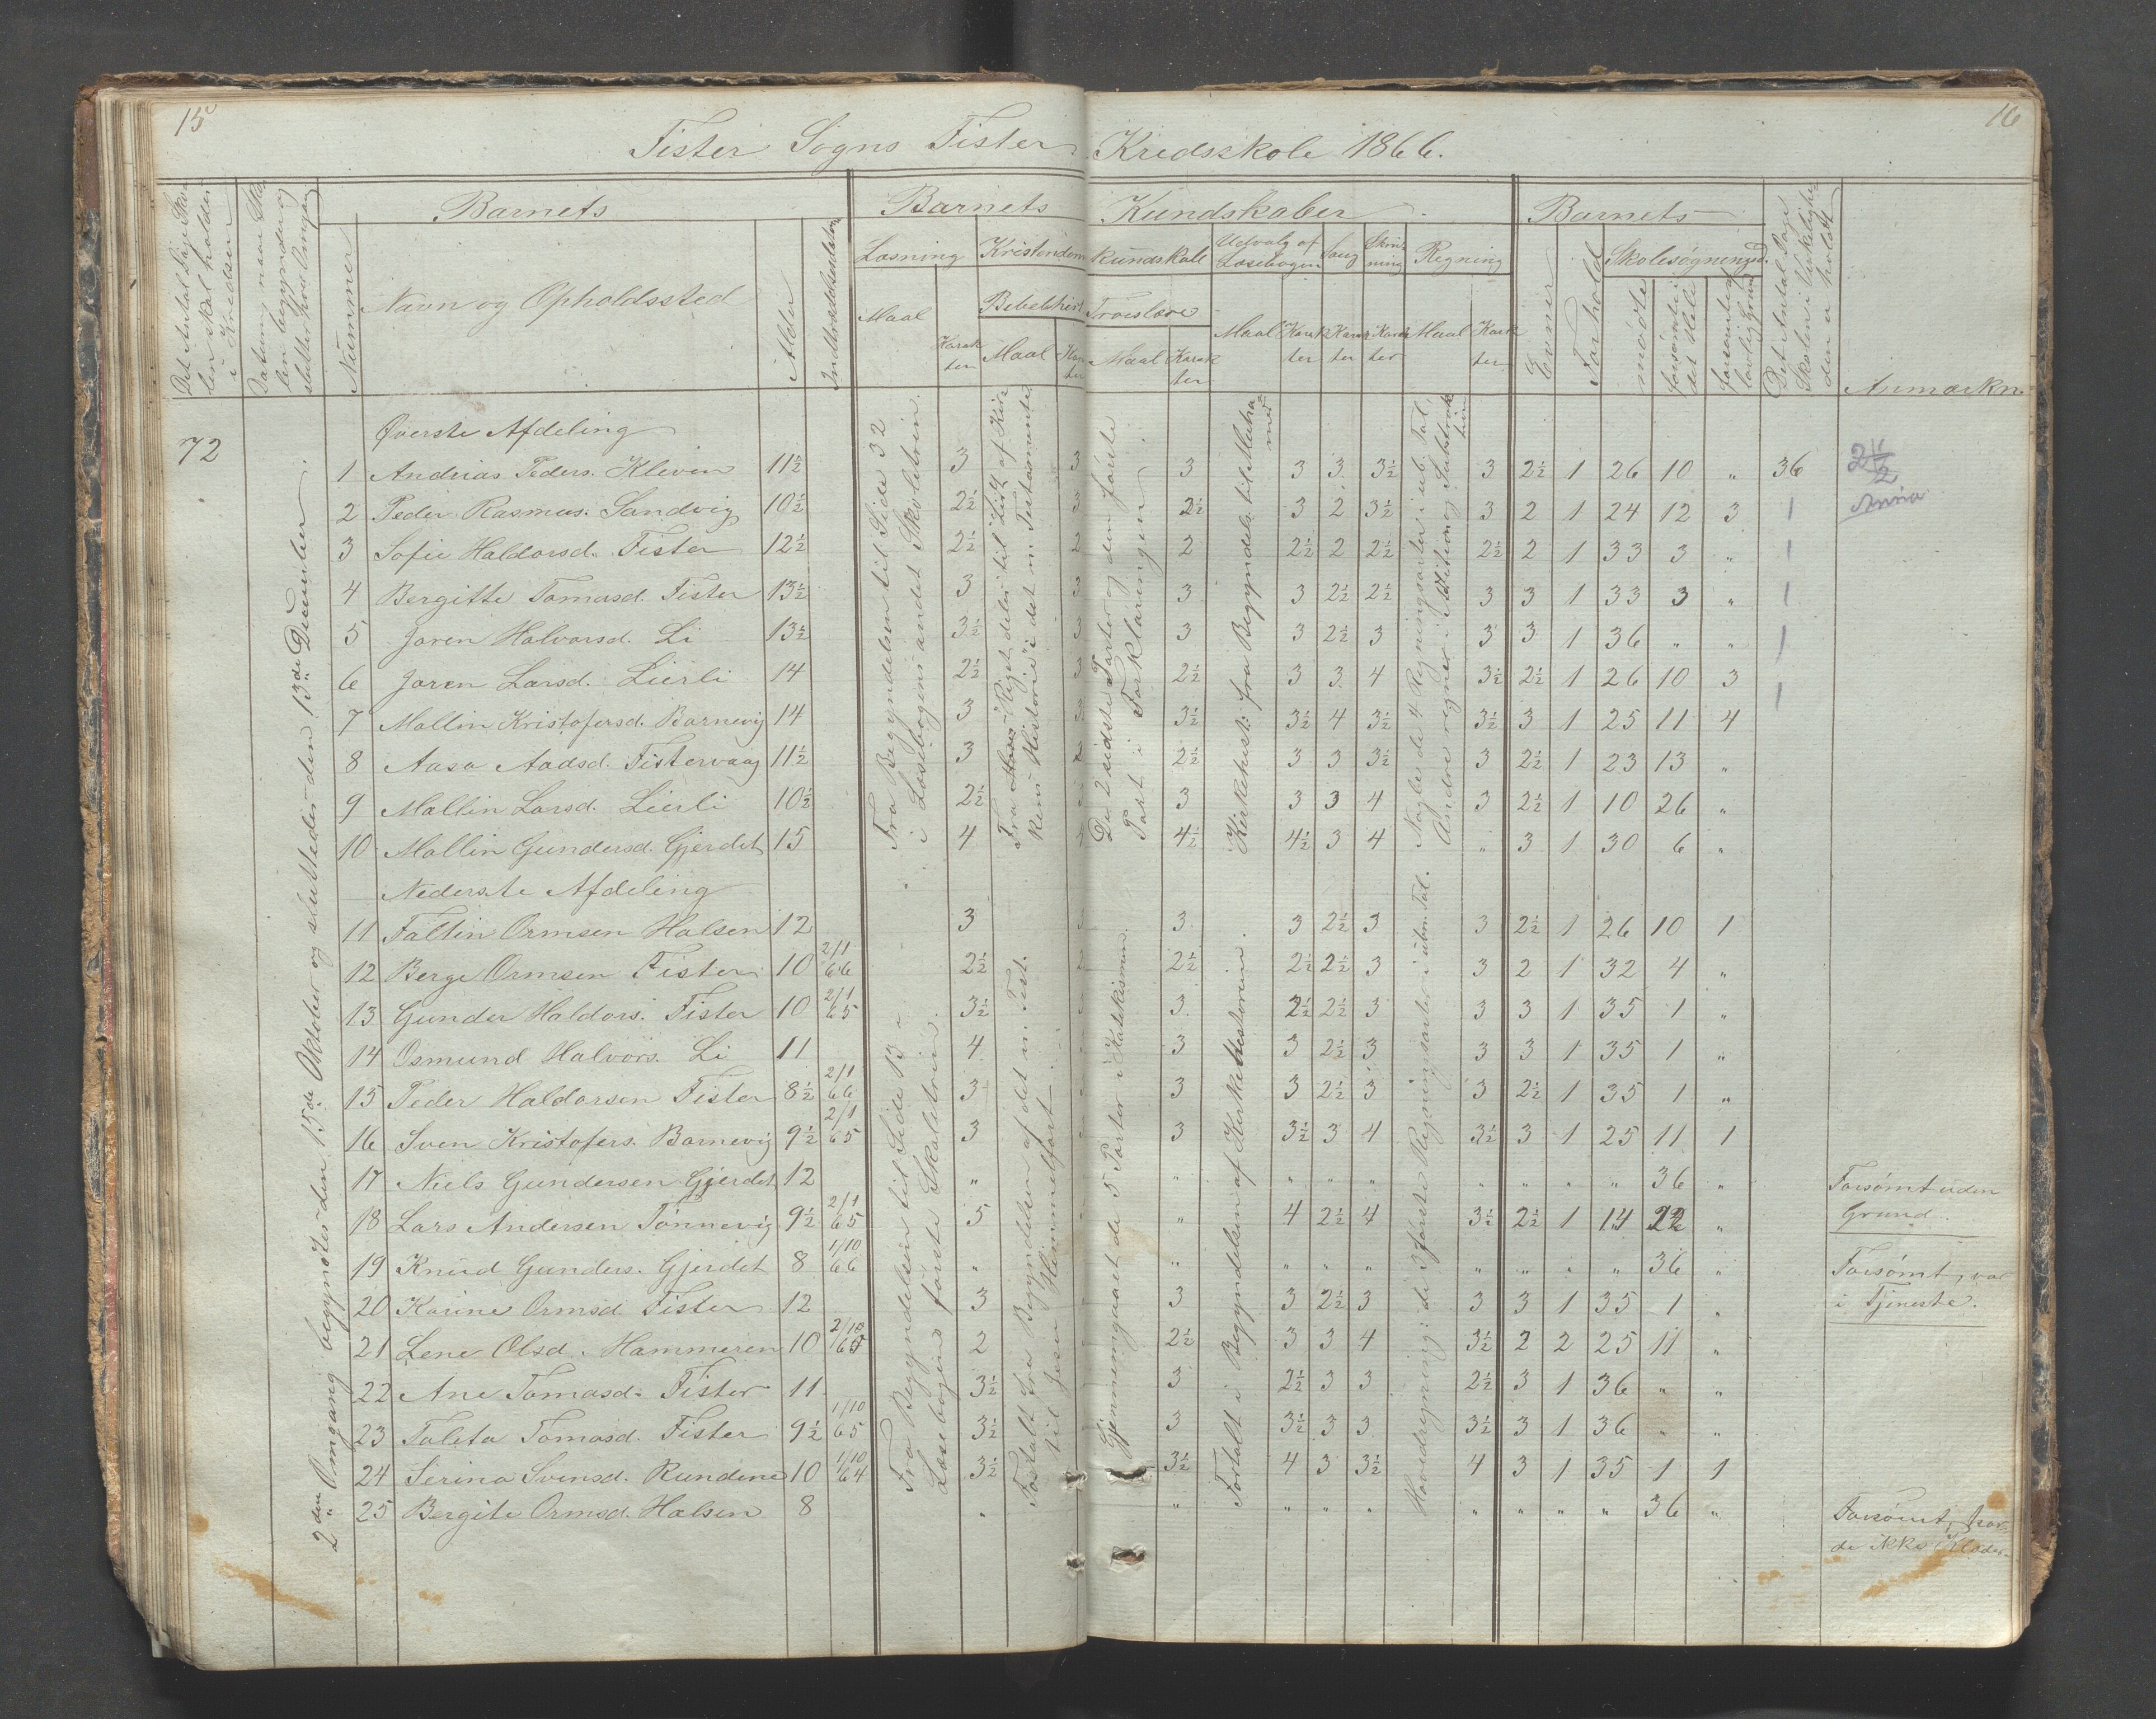 15
16
Fister Sogns Fister Kredsskole 1866.
Det Antal Dage Sko-
len skal holdes
i Kredsen
Datum, naar Sko-
len begynder og
slutter hver Omgang
Barnets
Nummer
Navn og Opholdssted
Alder
Indtrædelsesdatum
Barnets Kundskaber
Læsning
Kristendomskundskab
Udvalg af
Læsebogen
Sang
Skriv-
ning
Regning
Maal
Karak-
ter
Bibelhist.
Maal
Troeslære
Maal
Karak
ter
Maal
Karak
ter
Karak
ter
Karak
ter
Maal
Karak
ter
Barnets
Evner
Forhold
Skolesøgning
mødte
forsømte i
det Hele
forsømte af
lovlig Grund
Det Antal Dage
Skolen i Virkelighe-
den er holdt
Anmærkn.
72
2den Omgang begyntes den 15de Oktober og sluttedes den 13de December.
Øverste Afdeling
1 Andrias Peders. Kleven 11½ 3 3 3 3 3 3½ 3 2½ 1 26 10 " 36
2 Peder Rasmus. Sandvig 10½ 2½ 3 2½ 3 2 3½ 3 2 1 24 12 3
3 Sofie Haldorsd. Fister 12½ 2½ 2 2 2½ 2 2½ 2½ 2 1 33 3 "
4 Bergitte Tomasd. Fister 13½ 3 3 3 3 2½ 2½ 3 3 1 33 3 "
5 Joren Halvorsd. Li 13½ 3½ 3 3 3 2½ 3 3 3 1 36 " "
6 Joren Larsd. Lierli 14 2½ 3 2½ 3 3 4 3½ 2½ 1 26 10 3
7 Mallin Kristofersd. Barnevig 14 3 3½ 3½ 4 3½ 3½ 3 1 25 11 4
8 Aasa Aadsd. Fistervaag 11½ 3 2½ 3 3 3½ 3 2½ 1 23 13 "
9 Mallin Larsd. Lierli 10½ 2½ 3 3 3 4 3 2½ 1 10 26 "
10 Mallin Gundersd. Gjerdet 15 4 4 4½ 4½ 3 4 " 3 1 30 6 "
Fra Begyndelsen til Side 32
i Læsebogens andet Skoletrin.
De 2 sidste Parter og den første
Part i Forklaringen.
Kirkehist. fra Begyndels. til Muha-
med
Nogle de 4 Regningsarter i ub. Tal,
Andre regner Addition og Subtrak-
tion
2½
Anna
Nederste Afdeling
11 Faltin Ormsen Halsen 12 3 3 3 2½ 3 3 2½ 1 26 10 1
12 Berge Ormsen Fister 10 2/1 66 2½ 2½ 2½ 2½ 3 3 2 1 32 4 "
13 Gunder Haldors. Fister 10 2/1 65 3½ 3 2½ 2½ 3 3 3 1 35 1 "
14 Osmund Halvors. Li 11 4 3 3 2½ 3 3 3 1 35 1 "
15 Peder Haldorsen Fister 8½ 2/1 66 3 3 3 2½ 3 3 2½ 1 35 1 "
16 Sven Kristofers. Barnevig 9½ 2/1 65 3 3 3½ 3 4 3½ 3 1 25 11 1
17 Niels Gundersen Gjerdet 12 " " " " " " " " " 36 " Forsømt uden
Grund
18 Lars Andersen Tønnevig 9½ 2/1 65 5 " 4 2½ 4 3½ 2½ 1 14 22 "
19 Knud Gunders. Gjerdet 8 1/10 66 " " " " " " " " " 36 " Forsømt, var
i Tjeneste.
20 Karine Ormsd. Fister 12 3 3 3 2½ 3 3 3 1 35 1 "
21 Lene Olsd. Hammeren 10 2/10 65 2 2½ 3 3 4 3½ 2 2 25 11 "
22 Ane Tomasd. Fister 11 3½ 3 2½ 3 3 2½ 3 1 36 " "
23 Taleta Tomasd. Fister 9½ 1/10 65 3½ 3 3½ 3 3 3½ 3 1 36 " "
24 Serina Svensd. Rundene 10 1/10 64 3½ 3½ 4 3 3½ 4 3 1 35 1 1
25 Bergite Ormsd. Halsen 8 " " " " " " " " " 36 " Forsømt, hav-
de ikke Klæder.
Fra Begyndelsen til Side 13 i
Læsebogens første Skoletrin.
Fortalt fra Begyndelsen af det n. Test.
til Jesu Himmelfart.
Gjennemgaaet de 5 Parter i Katekismen.
Fortalt i Begyndelsen af Kirkehistorien.
Hovedregning: de 2 første Regningsarter i ubn. Tal.